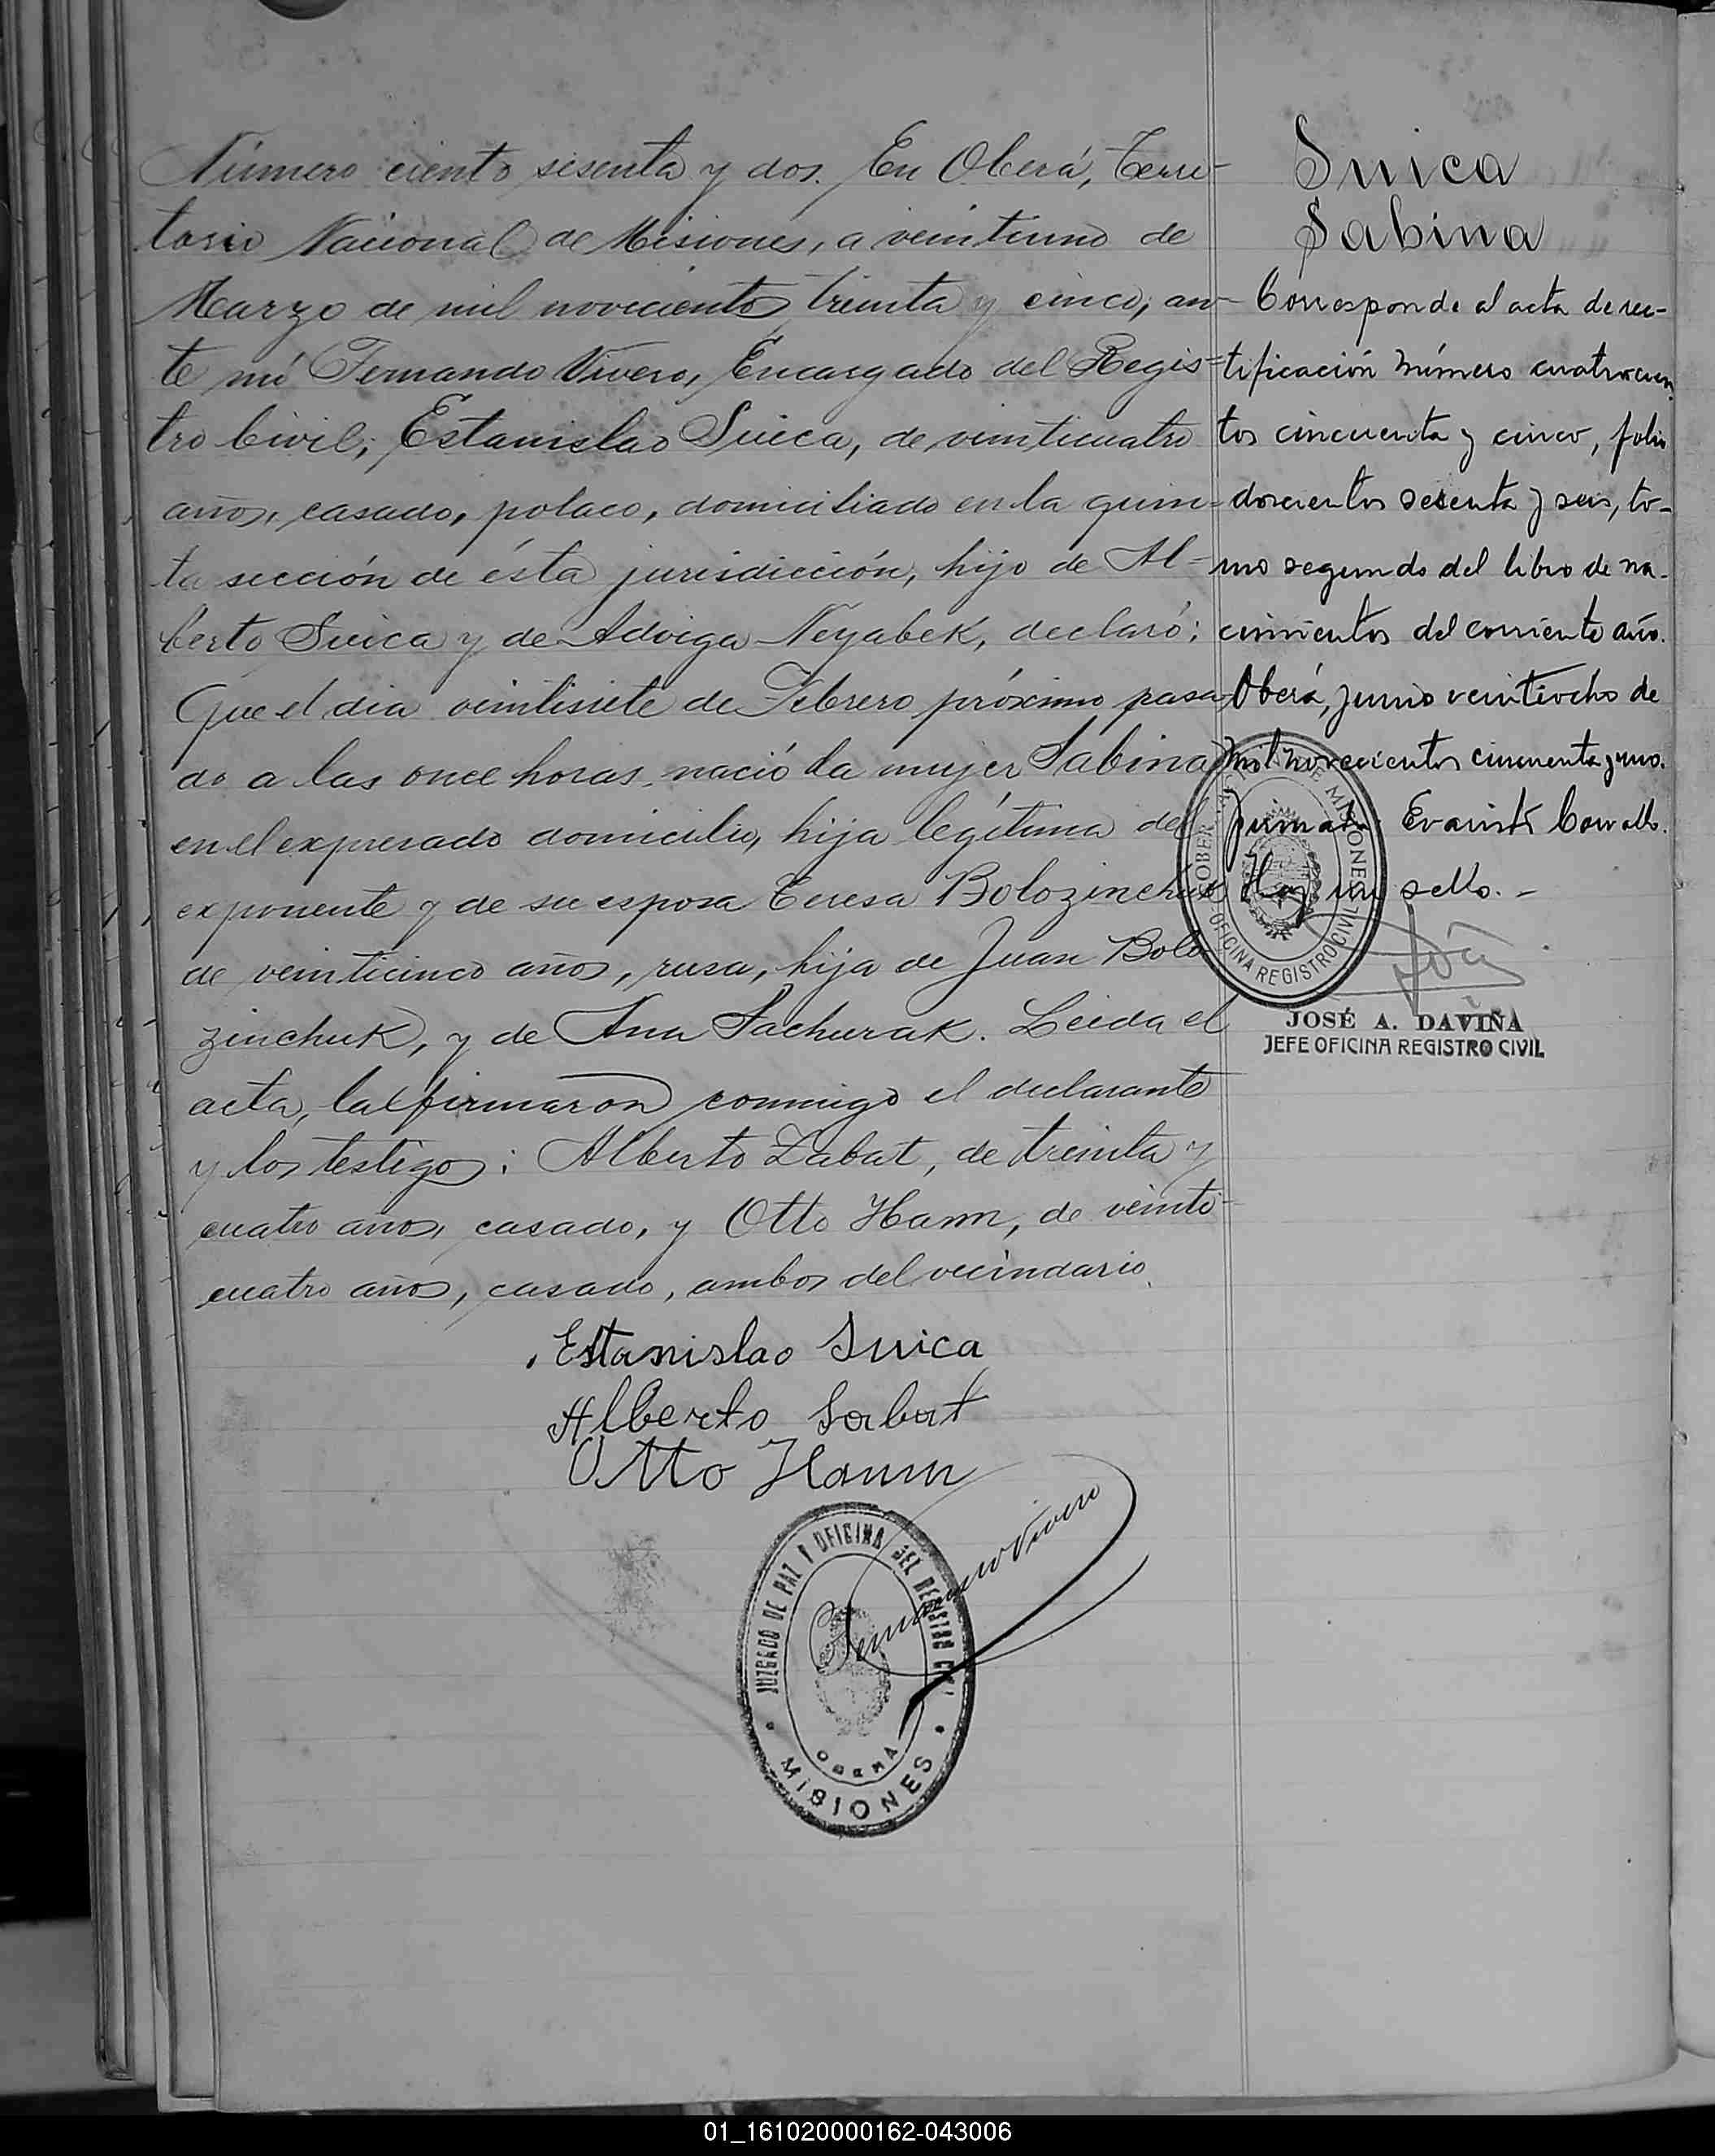 Número ciento sesenta y dos. En Oberá, Terri-
torio Nacional de Misiones, a veintiuno de
Marzo de mil noveciento treinta y cinco, an-
te mí Fernando Vivero, Encargado del Regis-
tro Civil; Estanislao Suica, de veinticuatro
años, casado, polaco, domiciliado en la quin-
ta sección de ésta jurisdicción, hijo de Al-
berto Suica y de Adviga Neyabek, declaró:
Que el dia veintisiete de Febrero próximo pasa
do a las once horas, nació la mujer Sabina
en el expresado domicilio, hija legítima del
exponente y de su esposa Teresa Bolozinchuk
de veinticinco años, rusa, hija de Juan Bolo
zinchuk, y de Ana Sachurak. Leida el
acta, la firmaron conmigo el declarante
y los testigos: Alberto Zabat, de treinta y
cuatro años, casado, y Otto Hamm, de veinti-
cuatro años, casado, ambos del vecindario.
Estanislao Suica
Alberto Sabat
Otto Hamm
Fernando Vivero
JUZGADO DE PAZ Y OFICINA DEL REGISTRO CIVIL
OBERA
MISIONES
Suica
Sabina
Corresponde al acta de rec-
tificación número cuatrocien
tos cincuenta y cinco, folio
doscientos sesenta y seis, to-
mo segundo del libro de na-
cimientos del corriente año.
Oberá, junio veintiocho de
mil novecientos cincuenta y uno.
firmado: Evaristo
Hay un sello.-
DE MISIONES
OFICINA REGISTRO CIVIL
JOSÉ A. DAVIÑA
JEFE OFICINA REGISTRO CIVIL
01_161020000162-043006